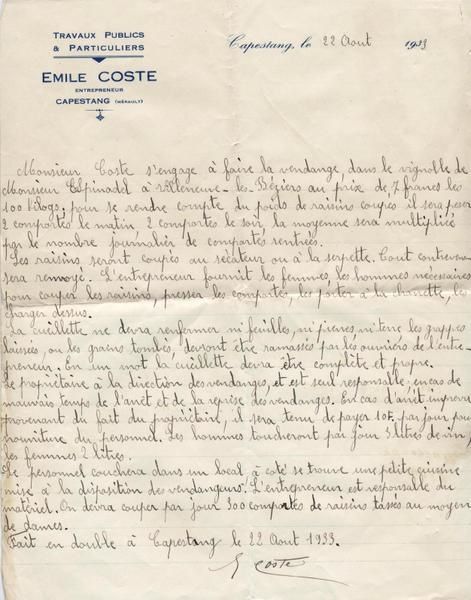 TRAVAUX PUBLICS
& PARTICULIERS
EMILE COSTE
ENTREPRENEUR
CAPESTANG (HÉRAULT)
Capestang, le 22 Aout 1933
Monsieur Coste s'engage à faire la vendange, dans le vignoble de
Monsieur Espinadel à Villeneuve-les-Béziers au prix de 7 francs les
100 kilogs. pour se rendre compte du poids de raisins coupés il sera peser
2 comportes le matin, 2 comportes le soir la moyenne sera multipliée
par le nombre journalier de comportes rentrées.
Les raisins seront coupés au sécateur ou à la serpette. Tout contrevenant
sera renvoyé. L'entrepreneur fournit les femmes, les hommes nécessaires
pour couper les raisins, presser les comportes, les porter à la charrette, les
charger dessus.
La cueillette ne devra renfermer ni feuilles, ni pierres, ni terre les grappes
laissées, ou les grains tombés, devront être ramassés par les ouvriers de l'entre-
preneur. En un mot la cueillette devra être complète et propre.
Le propriétaire à la direction des vendanges, et est seul responsable en cas de
mauvais temps de l'arrêt et de la reprise des vendanges. En cas d'arrêt imprévu
provenant du fait du propriétaire, il sera tenu de payer 10f. par jour pour
nourriture du personnel. Les hommes toucheront par jour 3 litres de vin,
les femmes 2 litres.
Le personnel couchera dans un local à coté se trouve une petite cuisine
mise à la disposition des vendangeurs. L'entrepreneur est responsable du
matériel. On devra couper par jour 300 comportes de raisins tassés au moyen
de dames.
Fait en double à Capestang le 22 Aout 1933.
E Coste